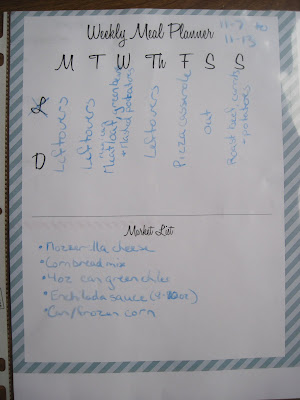 Weekly Meal Planner
11-7 to
11-13
M T W Th F S S
D
Leftovers
Leftovers
Meatloaf, green beans
+ Mashed potatoes
Leftovers
Pizza casserole
out
Roast beef, carrots
+ potatoes
Market List
• Mozzerella cheese
• Cornbread mix
• 4oz can green chiles
• Enchilada sauce (4-10oz)
• Can/frozen corn